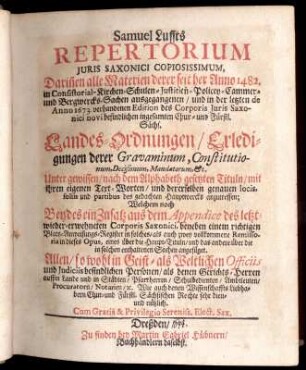 Samuel Luffts
REPERTORIUM
JURIS SAXONICI COPIOSISSIMUM,
Darinen alle Materien derer seit her Anno 1482.
in Consistorial-Kirchen-Schulen-Justitien-Policey-Cammer-
und Bergwercks-Sachen ausgegangenen / und in der letzten de
Anno 1673 verhandenen Edition des Corporis Juris Saxo-
nici novi befindlichen ingesamten Chur- und Fürstl.
Sächs.
Landes-Ordnungen / Erledi-
gungen derer Gravaminum, Constitutio-
num, Decisionum, Mandatorum &c.
Unter gewissen / nach dem Alphabeth gesetzten Tituln / mit
ihren eigenen Text-Worten / und dererselben genauen locis,
foliis und partibus des gedachten Hauptwercks anzutreffen;
Welchem noch
Beydes ein Zusatz aus dem Appendice des letzt-
wieder-erwehneten Corporis Saxonici, beneben einem richtigen
in dieses Opus, eines über die Haupt-Tituln / und das andere über die
in solchen enthaltenen Sachen beygefüget.
Allen / so wohl in Geist- als Weltlichen Officiis
und Judiciis befindlichen Personen / als denen Gerichts-Herren
auffm Lande und in Städten / Pfarrherren / Schulbedienten / Amtleuten /
Procuratorn / Notarien / &c. Wie auch denen Wissenschafft Liebha-
bern Chur- und Fürstl. Sächsischen Rechte sehr dien-
und nützlich.
Cum Gratia & Privilegio Sereniss. Elect. Sax.
Dreßden /
Zu finden bey Martin Gabriel Hübnern /
Buchhändlern daselbst.